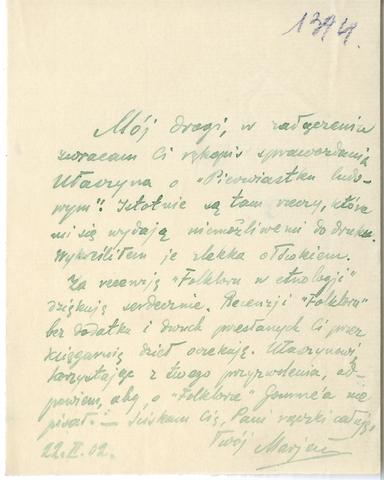 1344.
Mój drogi, w załączeniu
zwracam Ci rękopis sprawozdania
Ułaszyna o "Pierwiastku ludo-
wym". Istotnie są tam rzeczy, które
mi się wydają niemożliwemi do druku.
Wykreśliłem je zlekka ołówkiem.
Za recenzję "Folkloru w etnologji"
dziękuję serdecznie. Recenzji "Folkloru"
bez dodatku i dwóch przesłanych Ci przez
księgarnię dzieł oczekuję. Ułaszynowi
korzystając z twego przyzwolenia, od-
powiem, aby o "Folklorze" Gomme'a nie
pisał. — Ściskam Cię, Pani rączki całuję,
Twój Marjan
22.II.02.